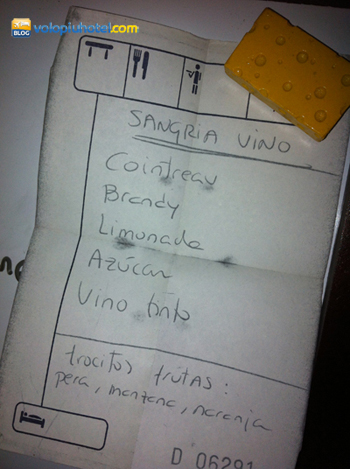 BLOG volopiuhotel.com
SANGRIA VINO
Cointreau
Brandy
Limonada
Azúcar
Vino tinto
trocitos frutas:
pera, manzana, naranja
D 06291